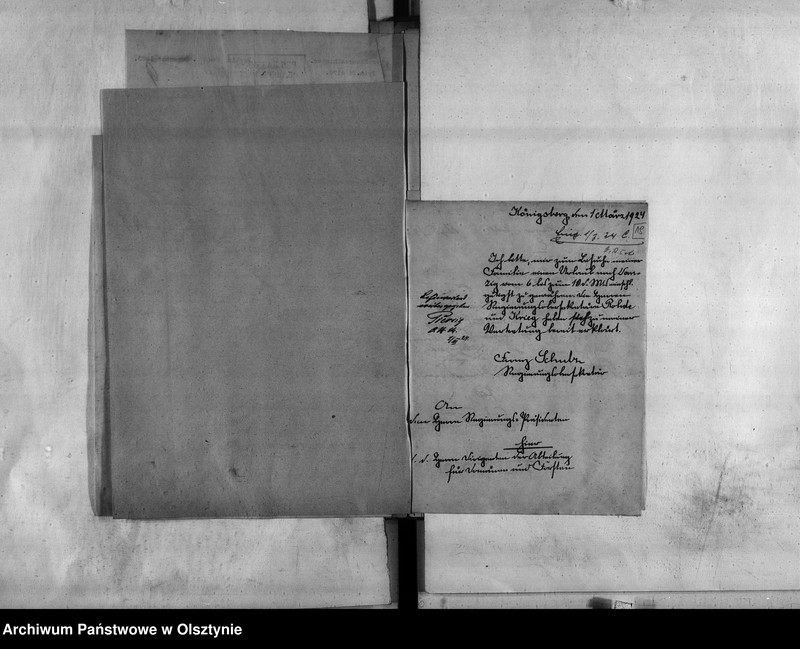 Königsberg, den 1 März 1924
Eing. 1/3. 24
Ich bitte, mir zum Besuche meiner
Familie einen Urlaub nach Dan-
zig vom 6. bis zum 10. d. Mts einschl.
gütigst zu gewähren. Die Herren
Regierungsobersekretäre Rohde
und Krieg haben sich zu meiner
Vertretung bereit erklärt.
Befürwortend
weitergegeben
Franz Schulz
Regierungsobersekretär
An
den Herrn Regierungs-Präsidenten
hier
d. d. Herrn Dirigenten der Abteilung
für Domänen und Forsten
Archiwum Państwowe w Olsztynie